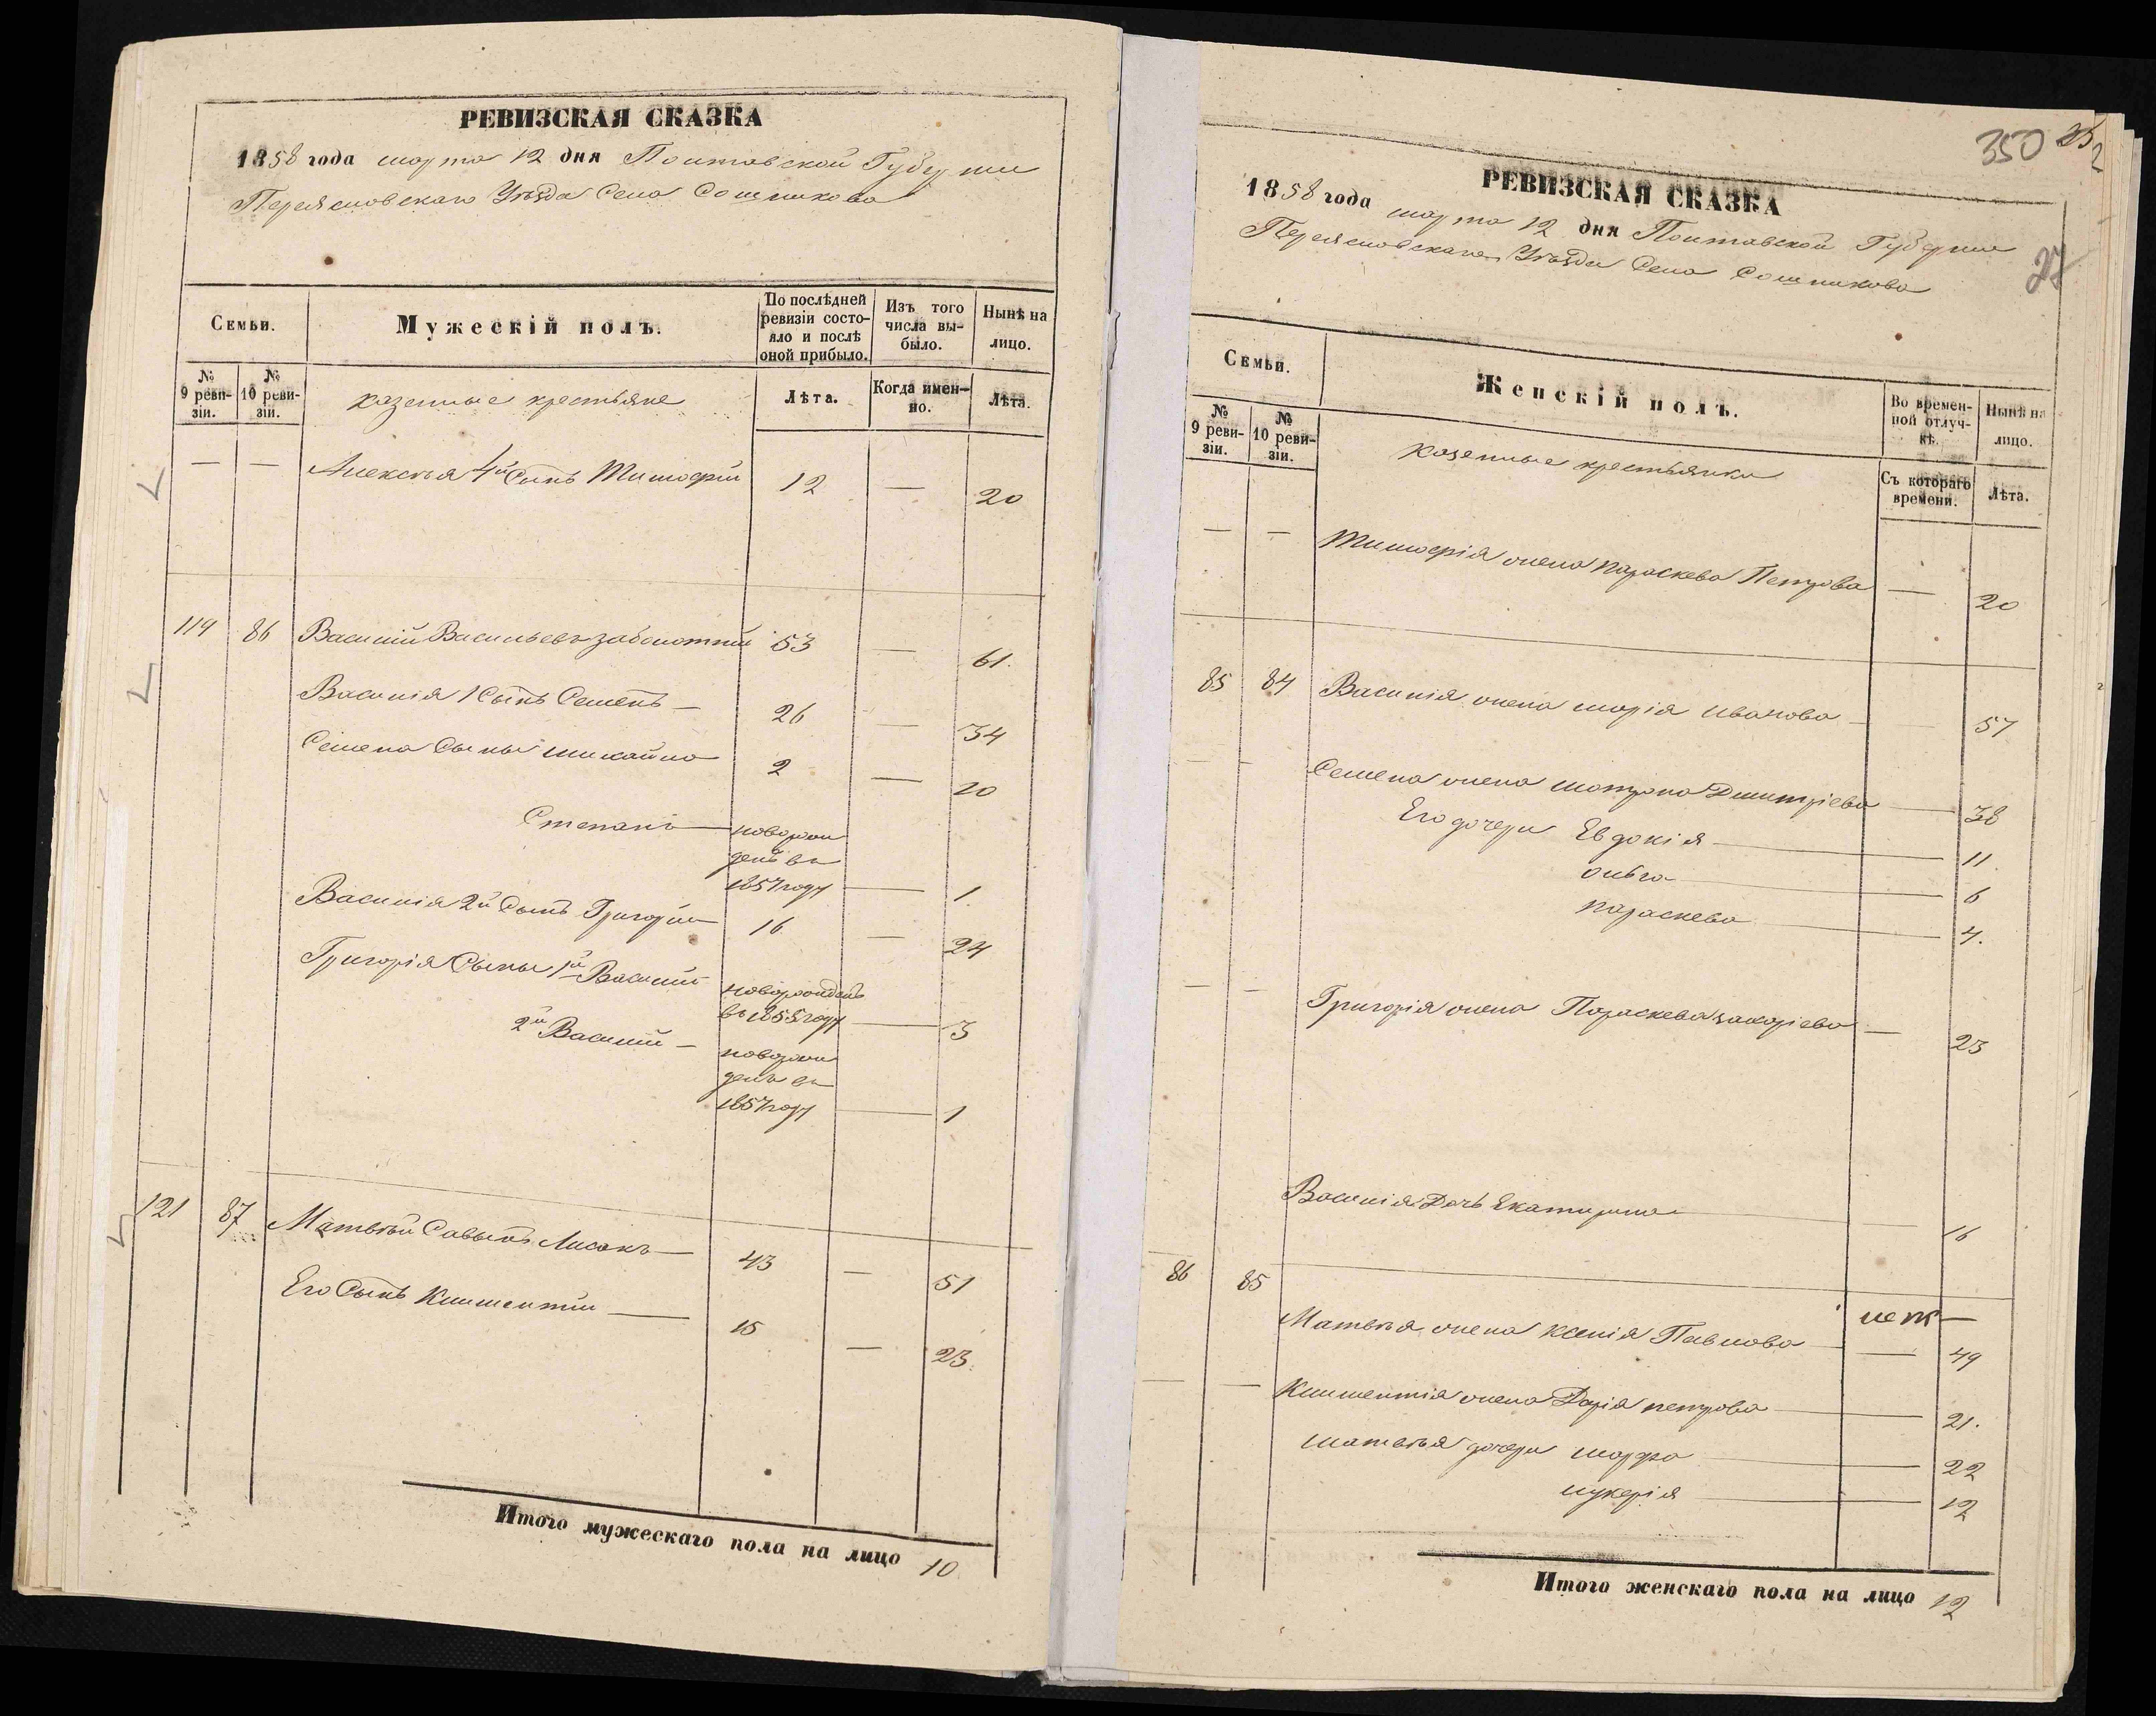 РЕВИЗСКАЯ СКАЗКА
1858 года марта 12 дня Полтавской Губерніи
Переясловскаго Уѣзда Села Сошникова
Семьи.
Мужескій полъ.
По послѣдней ревизіи состояло и послѣ оной прибыло.
Изъ того числа выбыло.
Нынѣ на лицо.
№ 9 ревизіи.
№ 10 ревизіи.
казенные крестьяне
Лѣта.
Когда именно.
Лѣта.
— — Алексѣя 4й Сынъ Тимофей 12 — 20
119 86 Василій Васильевъ Заболотній 53 — 61.
Василія 1 Сынъ Семенъ — 26 — 34
Семена Сыны Михайло 2 — 10
Степанъ — новорож
денъ въ
1857 году — 1.
Василія 2й Сынъ Григорій 16 — 24
Григорія Сыны 1й Василій новорожденъ
въ 1855 году — 3
2й Василій — новорож
денъ въ
1857 году — 1
121 87 Матвѣй Савинъ Лисакъ — 43 — 51
Его Сынъ Климентій — 15 — 23.
Итого мужескаго пола на лицо 10
350
27
РЕВИЗСКАЯ СКАЗКА
1858 года марта 12 дня Полтавской Губерніи
Переясловскаго Уѣзда Села Сошникова
Семьи.
Женскій полъ.
Во временной отлучкѣ.
Нынѣ на лицо.
№ 9 ревизіи.
№ 10 ревизіи.
казенные крестьянки
Съ котораго времени.
Лѣта.
— — Тимофія жена Параскева Петрова — 20
85 84 Василія жена Марія Иванова — 57
— — Семена жена Мотрона Дмитріева — 38
Его дочери Евдокія — 11.
Ольга — 6
Параскева — 4.
— — Григорія жена Параскева Захаріева — 23
Василія Дочь Екатирина — 16
86 85
Матвѣя жена Ксенія Павлова — 49
— — Климентія жена Дарія Петрова — 21.
Матвѣя дочери Марфа — 22
Лукерія — 12
Итого женскаго пола на лицо 12